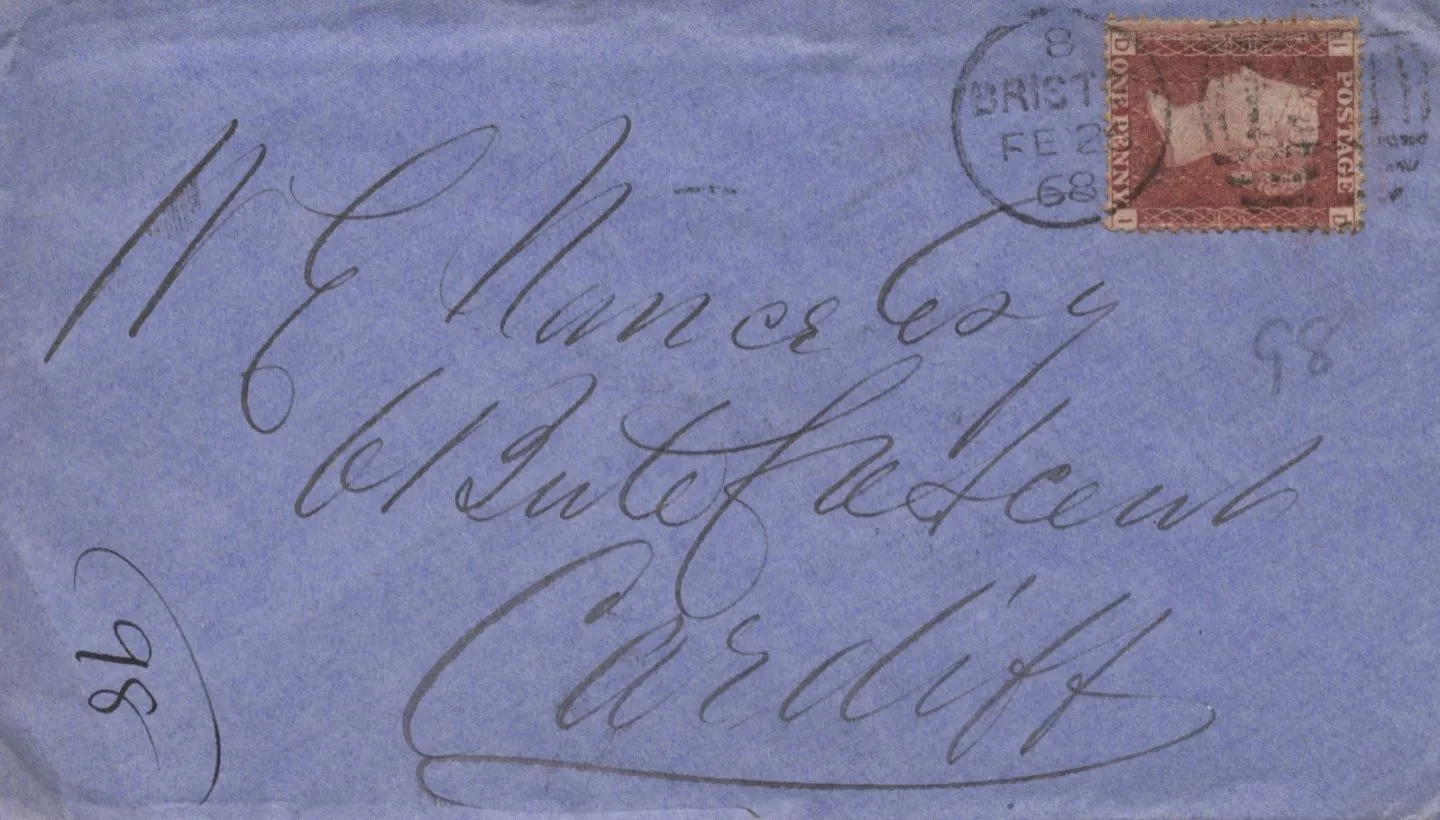 8
BRIST
FE 2
68
I POSTAGE D
D ONE PENNY I
E Nance Esq
61 Bute Crescent
Cardiff
98
98